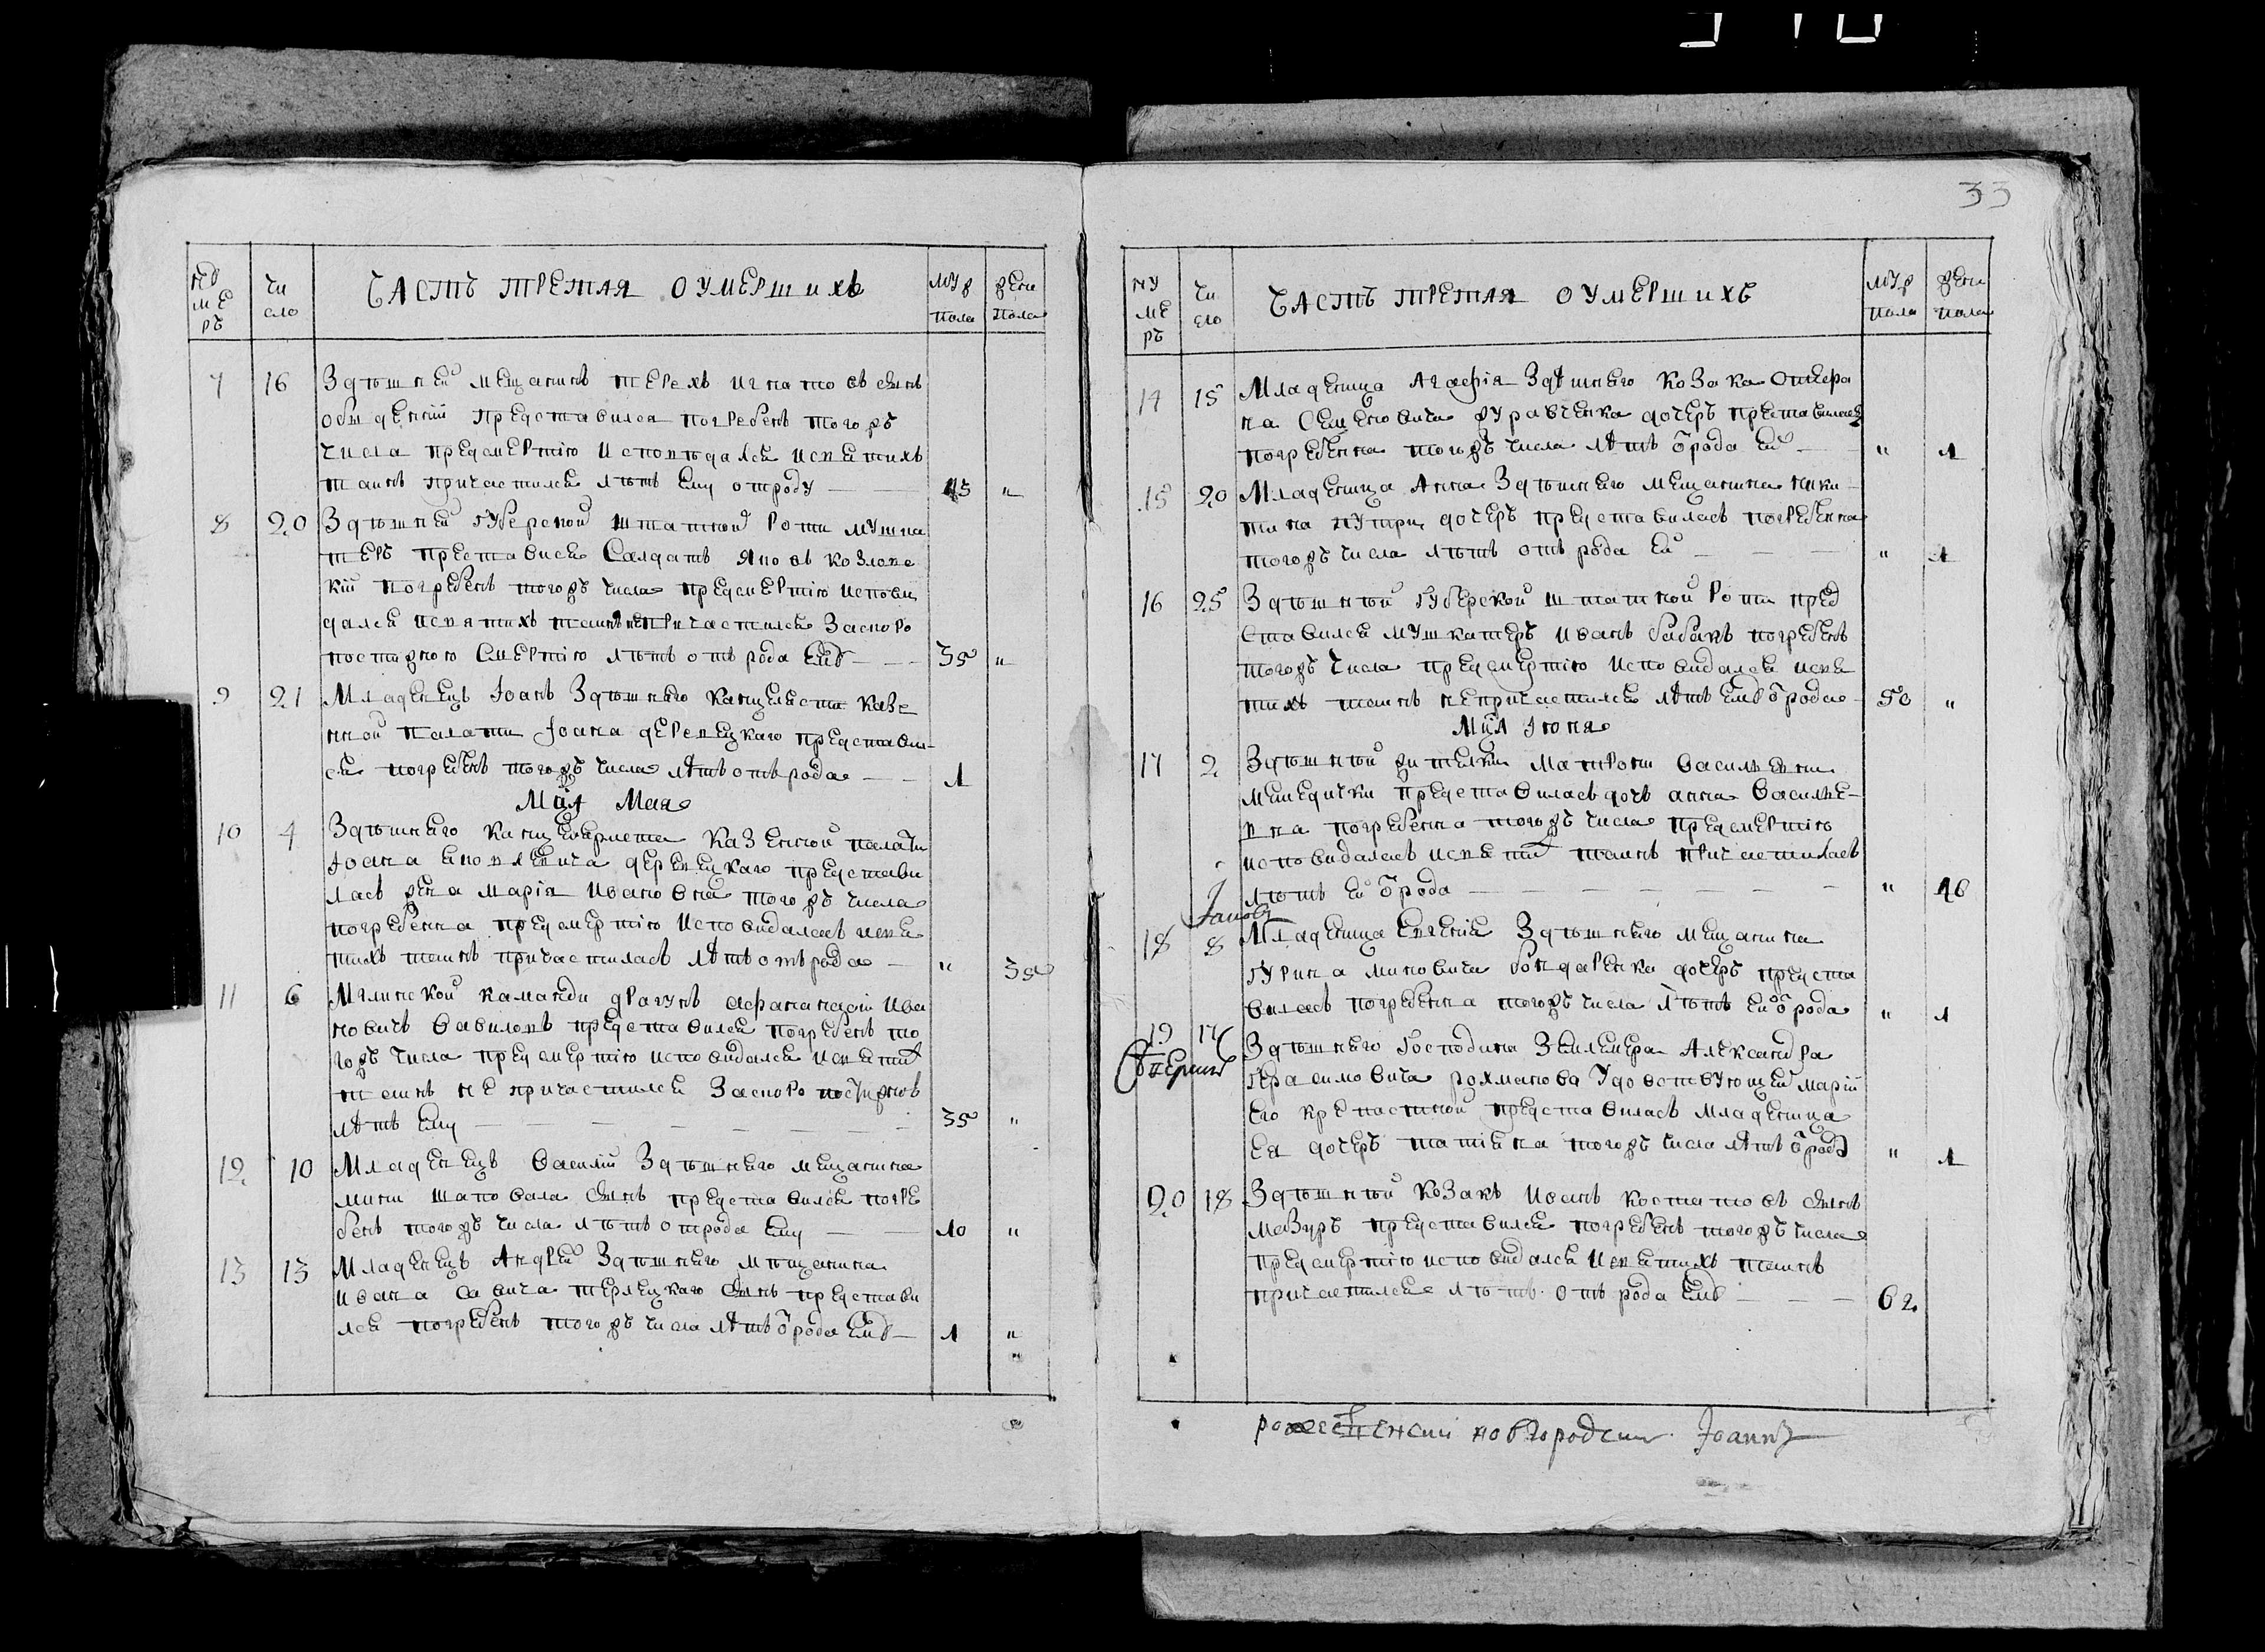 33
нумеръ число часть третая оумершихъ муж пола жен пола
7 16 Здѣшней мещанинъ терехъ игнатовъ сынъ
представился погребенъ тогожъ
числа предсмертію исповѣдался исвятихъ
таинъ причастился лѣтъ ему отроду 45 "
8 20 Здѣшней губерской штатной роти мушка
теръ преставися Салдатъ яковъ козловс
кій погребенъ тогожъ числа предсмертію испови
дался исвятихъ таинъ непричастился Заскоро
постижною смертію лѣтъ отъ рода ему 35 "
9 21 Младенецъ Іоанъ Здѣшнего канцелиста казе
нной палати Іоана деревецкаго представи
ся погребенъ тогожъ числа лѣтъ отъ рода 1
Мця Мая
10 4 Здѣшнего канцеляриста казенной палати
Іоана деревецкаго представи
лась жена марія ивановна тогожъ числа
погребенна предсмертію исповидалась исвя
тихъ таинъ причастилась лѣтъ отъ рода " 35
11 6 Мглинской каманди драгунъ афанасій ива
новичъ вавиловъ представился погребенъ то
гожъ числа предсмертію исповидался исвятих
таинъ не причастился Заскоро постижно
лѣтъ ему 35 "
12 10 Младенецъ василій Здѣшнего мещанина
мини шаповала сынъ представился погре
бенъ тогожъ числа лѣтъ отрода ему 10 "
13 13 Младенецъ Андрей Здѣшнего мѣщанина
ивана савича терлецкаго сынъ представи
лся погребенъ тогожъ числа лѣтъ ѿрода ему 1 "
нумеръ число часть третая оумершихъ муж пола жен пола
14 15 Младеница Агафія Здѣшнего козака
на Семеновича журавченка дочеръ преставилася
погребенна тогожъ числа лѣтъ ѿрода ей " 1
15 20 Младеница Анна Здѣшнего мещанина ники
тина дочеръ представилась погребенна
тогожъ числа лѣтъ отъ рода ей " 1
16 25 Здѣшной губерской штатной роти пред
ставился мушкатеръ иванъ бабакъ погребенъ
тогожъ числа предсмертію исповидался исвя
тихъ таинъ непричастился лѣтъ ему ѿрода 50 "
Мця Іюня
17 2 Здѣшной жителки матрони василевни
представилась дочъ анна василе-
вна погребенна тогожъ числа предсмертію
исповидалась исвятих таинъ причастилась
лѣтъ ей ѿрода " 46
18 8 Младеница Евгенія Здѣшнего мещанина
гурина миновича бондаренка дочеръ предста
вилась погребенна тогожъ числа лѣтъ ей ѿрода " 1
19 17 Здѣшнего господина Землемера Александра
герасимовича рохманова удовствующей маріи
его крепастной представилась младеница
ея дочеръ татіена тогожъ числа лѣтъ ѿрода " 1
20 18 Здѣшной козакъ иванъ костатовъ сынъ
мазуръ представился погребенъ тогожъ числа
предсмертію исповидался исвятихъ таинъ
причастился лѣтъ отъ рода ему 62
Іоаннъ